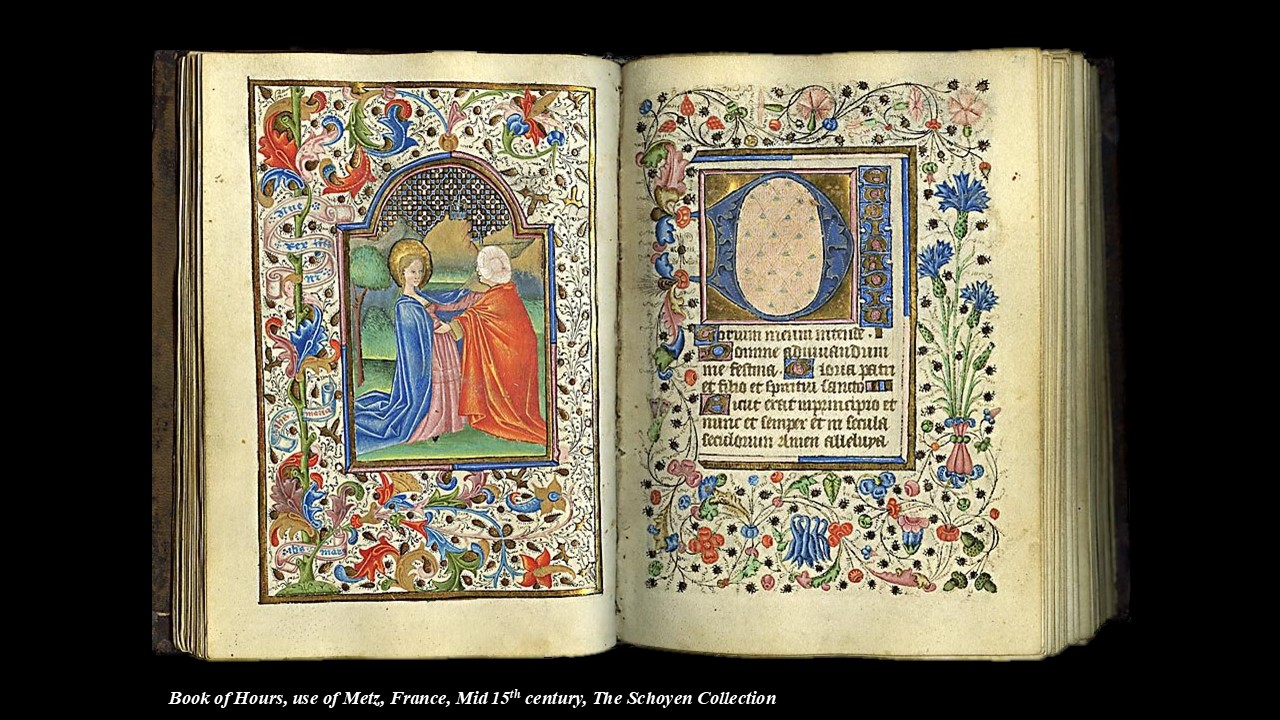 D
torium meum intende ·
Domine adiuuandum
me festina · Gloria patri
et filio et spiritui sancto
Sicut erat inprincipio et
nunc et semper et in secula
seculorum Amen alleluya
Book of Hours, use of Metz, France, Mid 15th century, The Schoyen Collection